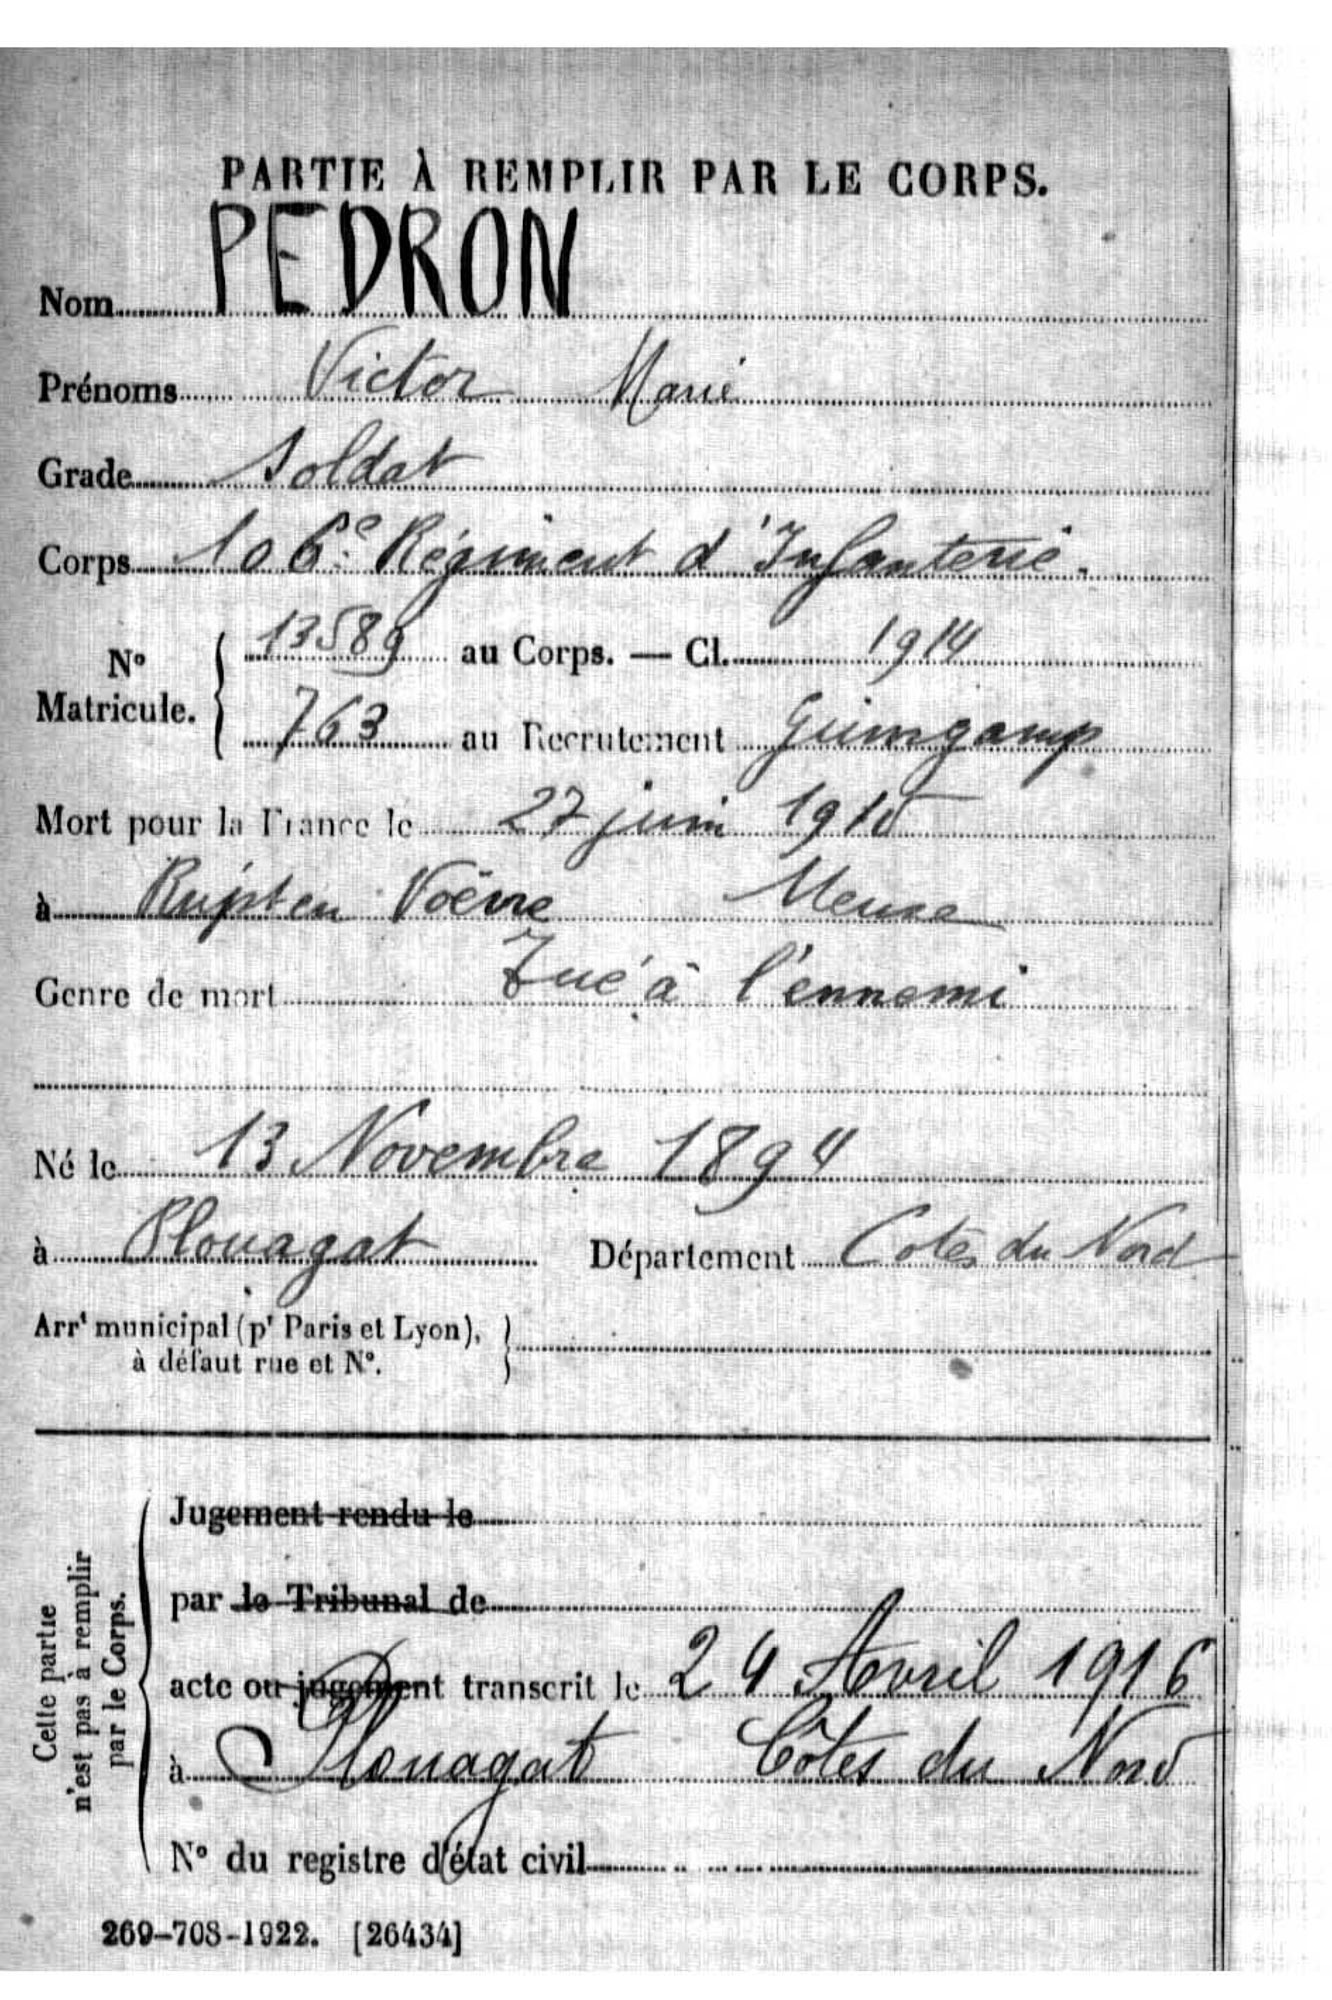 PARTIE À REMPLIR PAR LE CORPS.
Nom PEDRON
Prénoms Victor Marie
Grade Soldat
Corps 106e Régiment d'Infanterie.
N° Matricule. { 13589 au Corps. — Cl. 1914
763 au Recrutement Guimgamp
Mort pour la France le 27 juin 1915
à Rupt en Voëvre Meuse
Genre de mort Tué à l'ennemi
Né le 13 Novembre 1894
à Plouagat Département Cotes du Nord
Arrt municipal (pr Paris et Lyon), }
à défaut rue et N°.
Cette partie
n'est pas à remplir
par le Corps.
Jugement rendu le
par le Tribunal de
acte ou jugement transcrit le 24 Avril 1916
à Plouagat Côtes du Nord
N° du registre d'état civil
269-708-1922. [26434]